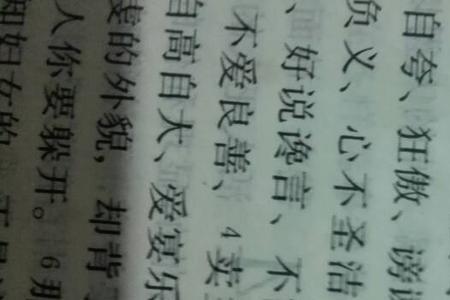 自夸、狂傲、谤
负义、心不圣洁
、好说谗言、不
不爱良善、4卖
自高自大、爱宴乐
的外貌,却背
人你要躲开。6那
妇女的